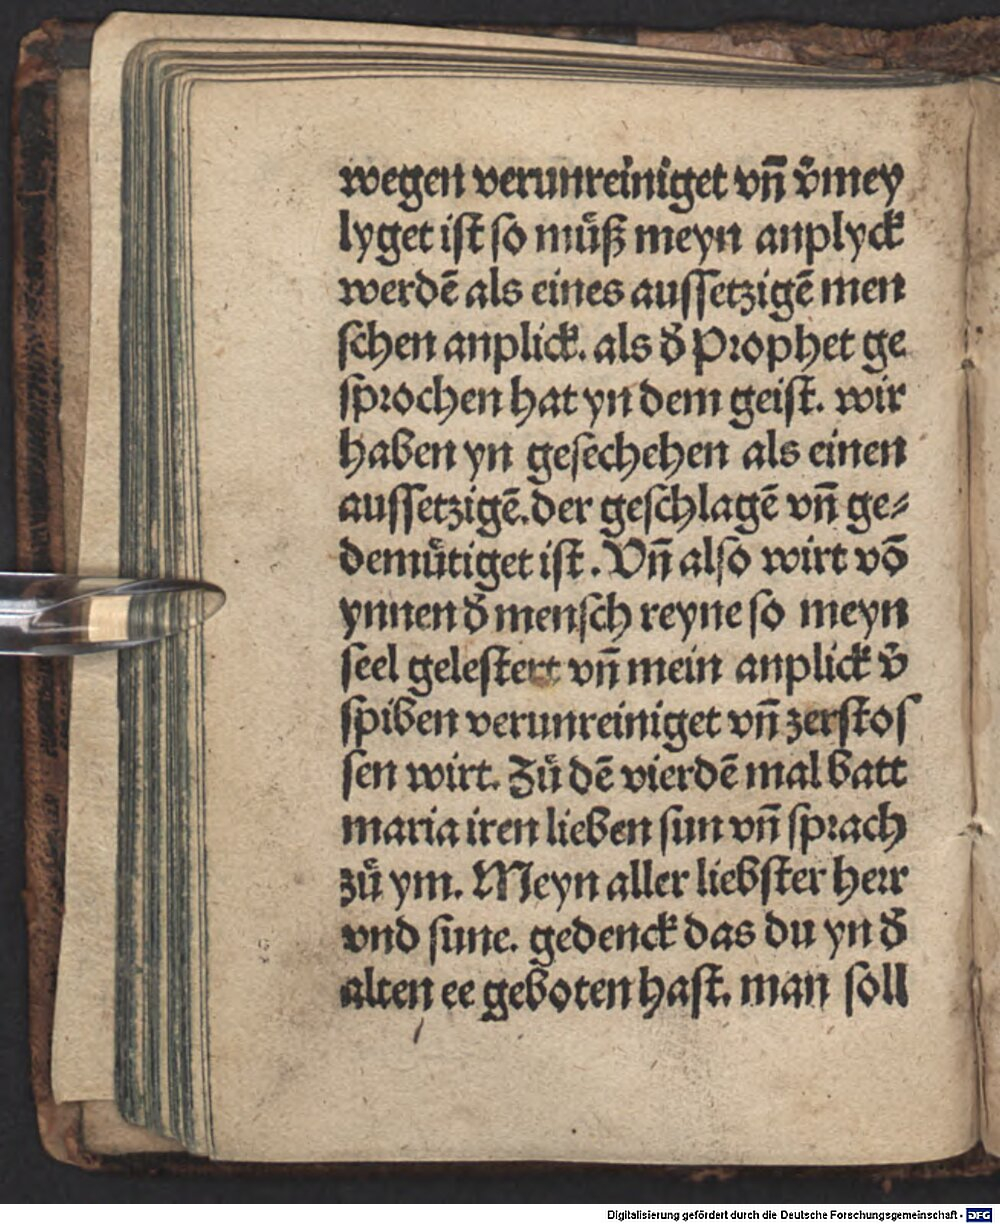 wegen verunreiniget vñ v̄mey
lyget ist so müß meyn anplyck
werdē als eines aussetzigē men
schen anplick. als d̄ Prophet ge
sprochen hat yn dem geist. wir
haben yn gesechehen als einen
aussetzigē. der geschlagē vñ ge⸗
demütiget ist. Vñ also wirt vō
ynnen d̄ mensch reyne so meyn
seel gelestert vñ mein anplick v̄
spiben verunreiniget vñ zerstos
sen wirt. Zuͦ dē vierdē mal batt
maria iren lieben sun vñ sprach
zuͦ ym. Meyn aller liebster herr
vnd sune. gedenck das du yn d̄
alten ee geboten hast. man soll
Digitalisierung gefördert durch die Deutsche Forschungsgemeinschaft - DFG